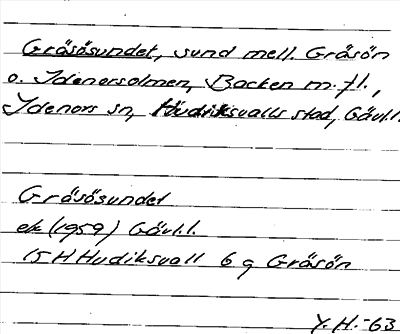 Gråsösundet, sund mell. Gråsön
o. Idenorsolmen, Backen m. fl.,
Idenors sn, Hudiksvalls stad, Gävl.l.
Gråsösundet
ek (1959) Gävl.l.
15 H Hudiksvall 6 g Gråsön
Y. H. -63